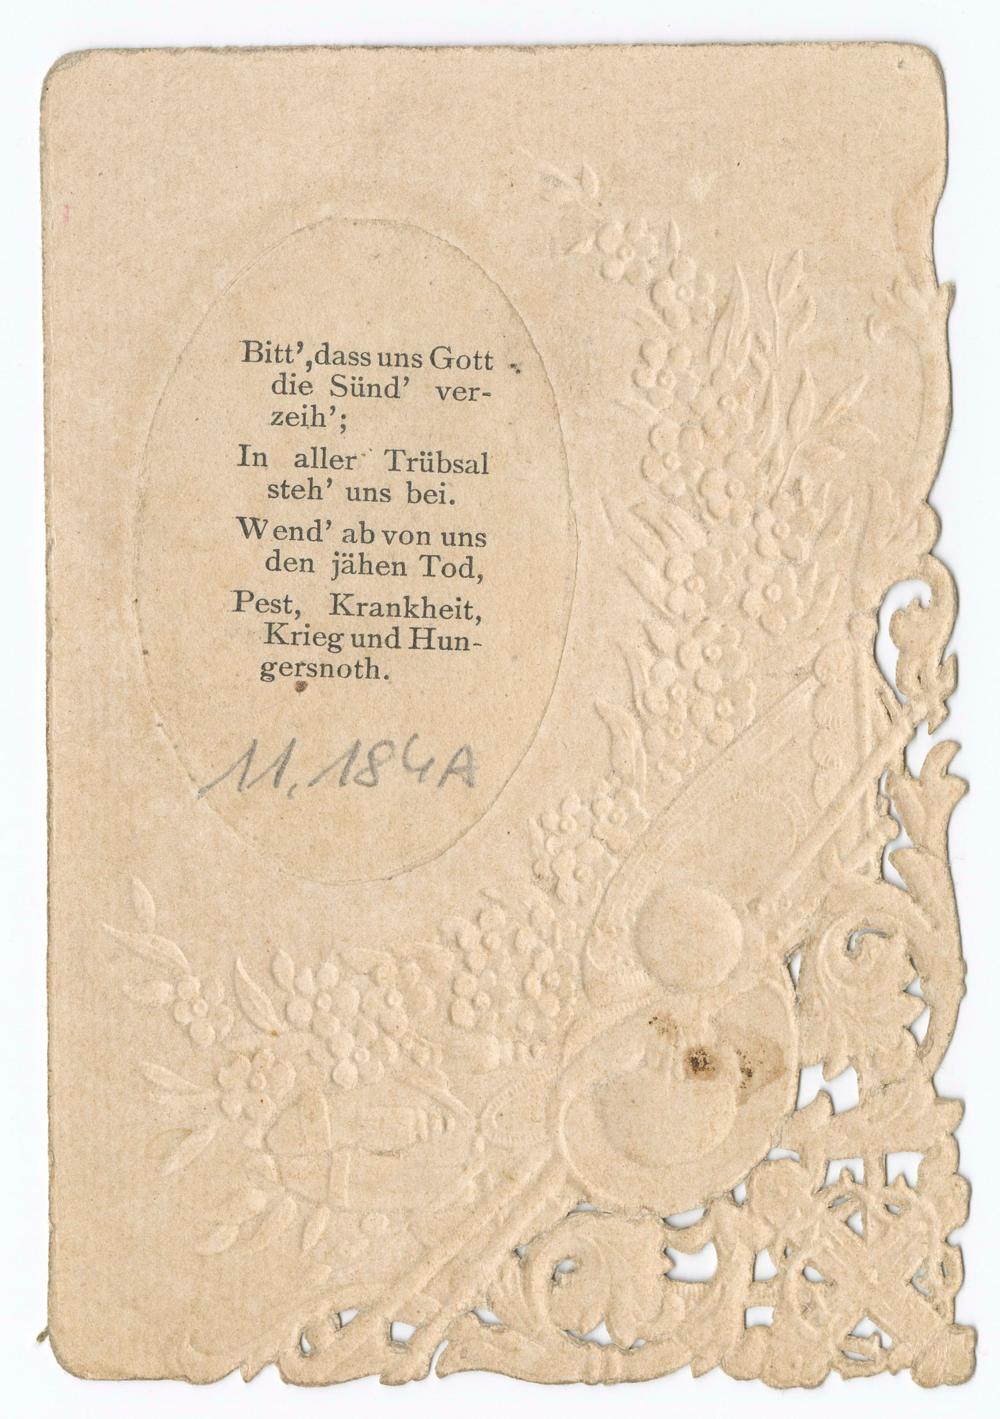 Bitt’, dass uns Gott
die Sünd’ ver-
zeih’;
In aller Trübsal
steh’ uns bei.
Wend’ ab von uns
den jähen Tod,
Pest, Krankheit,
Krieg und Hun-
gersnoth.
11, 184A